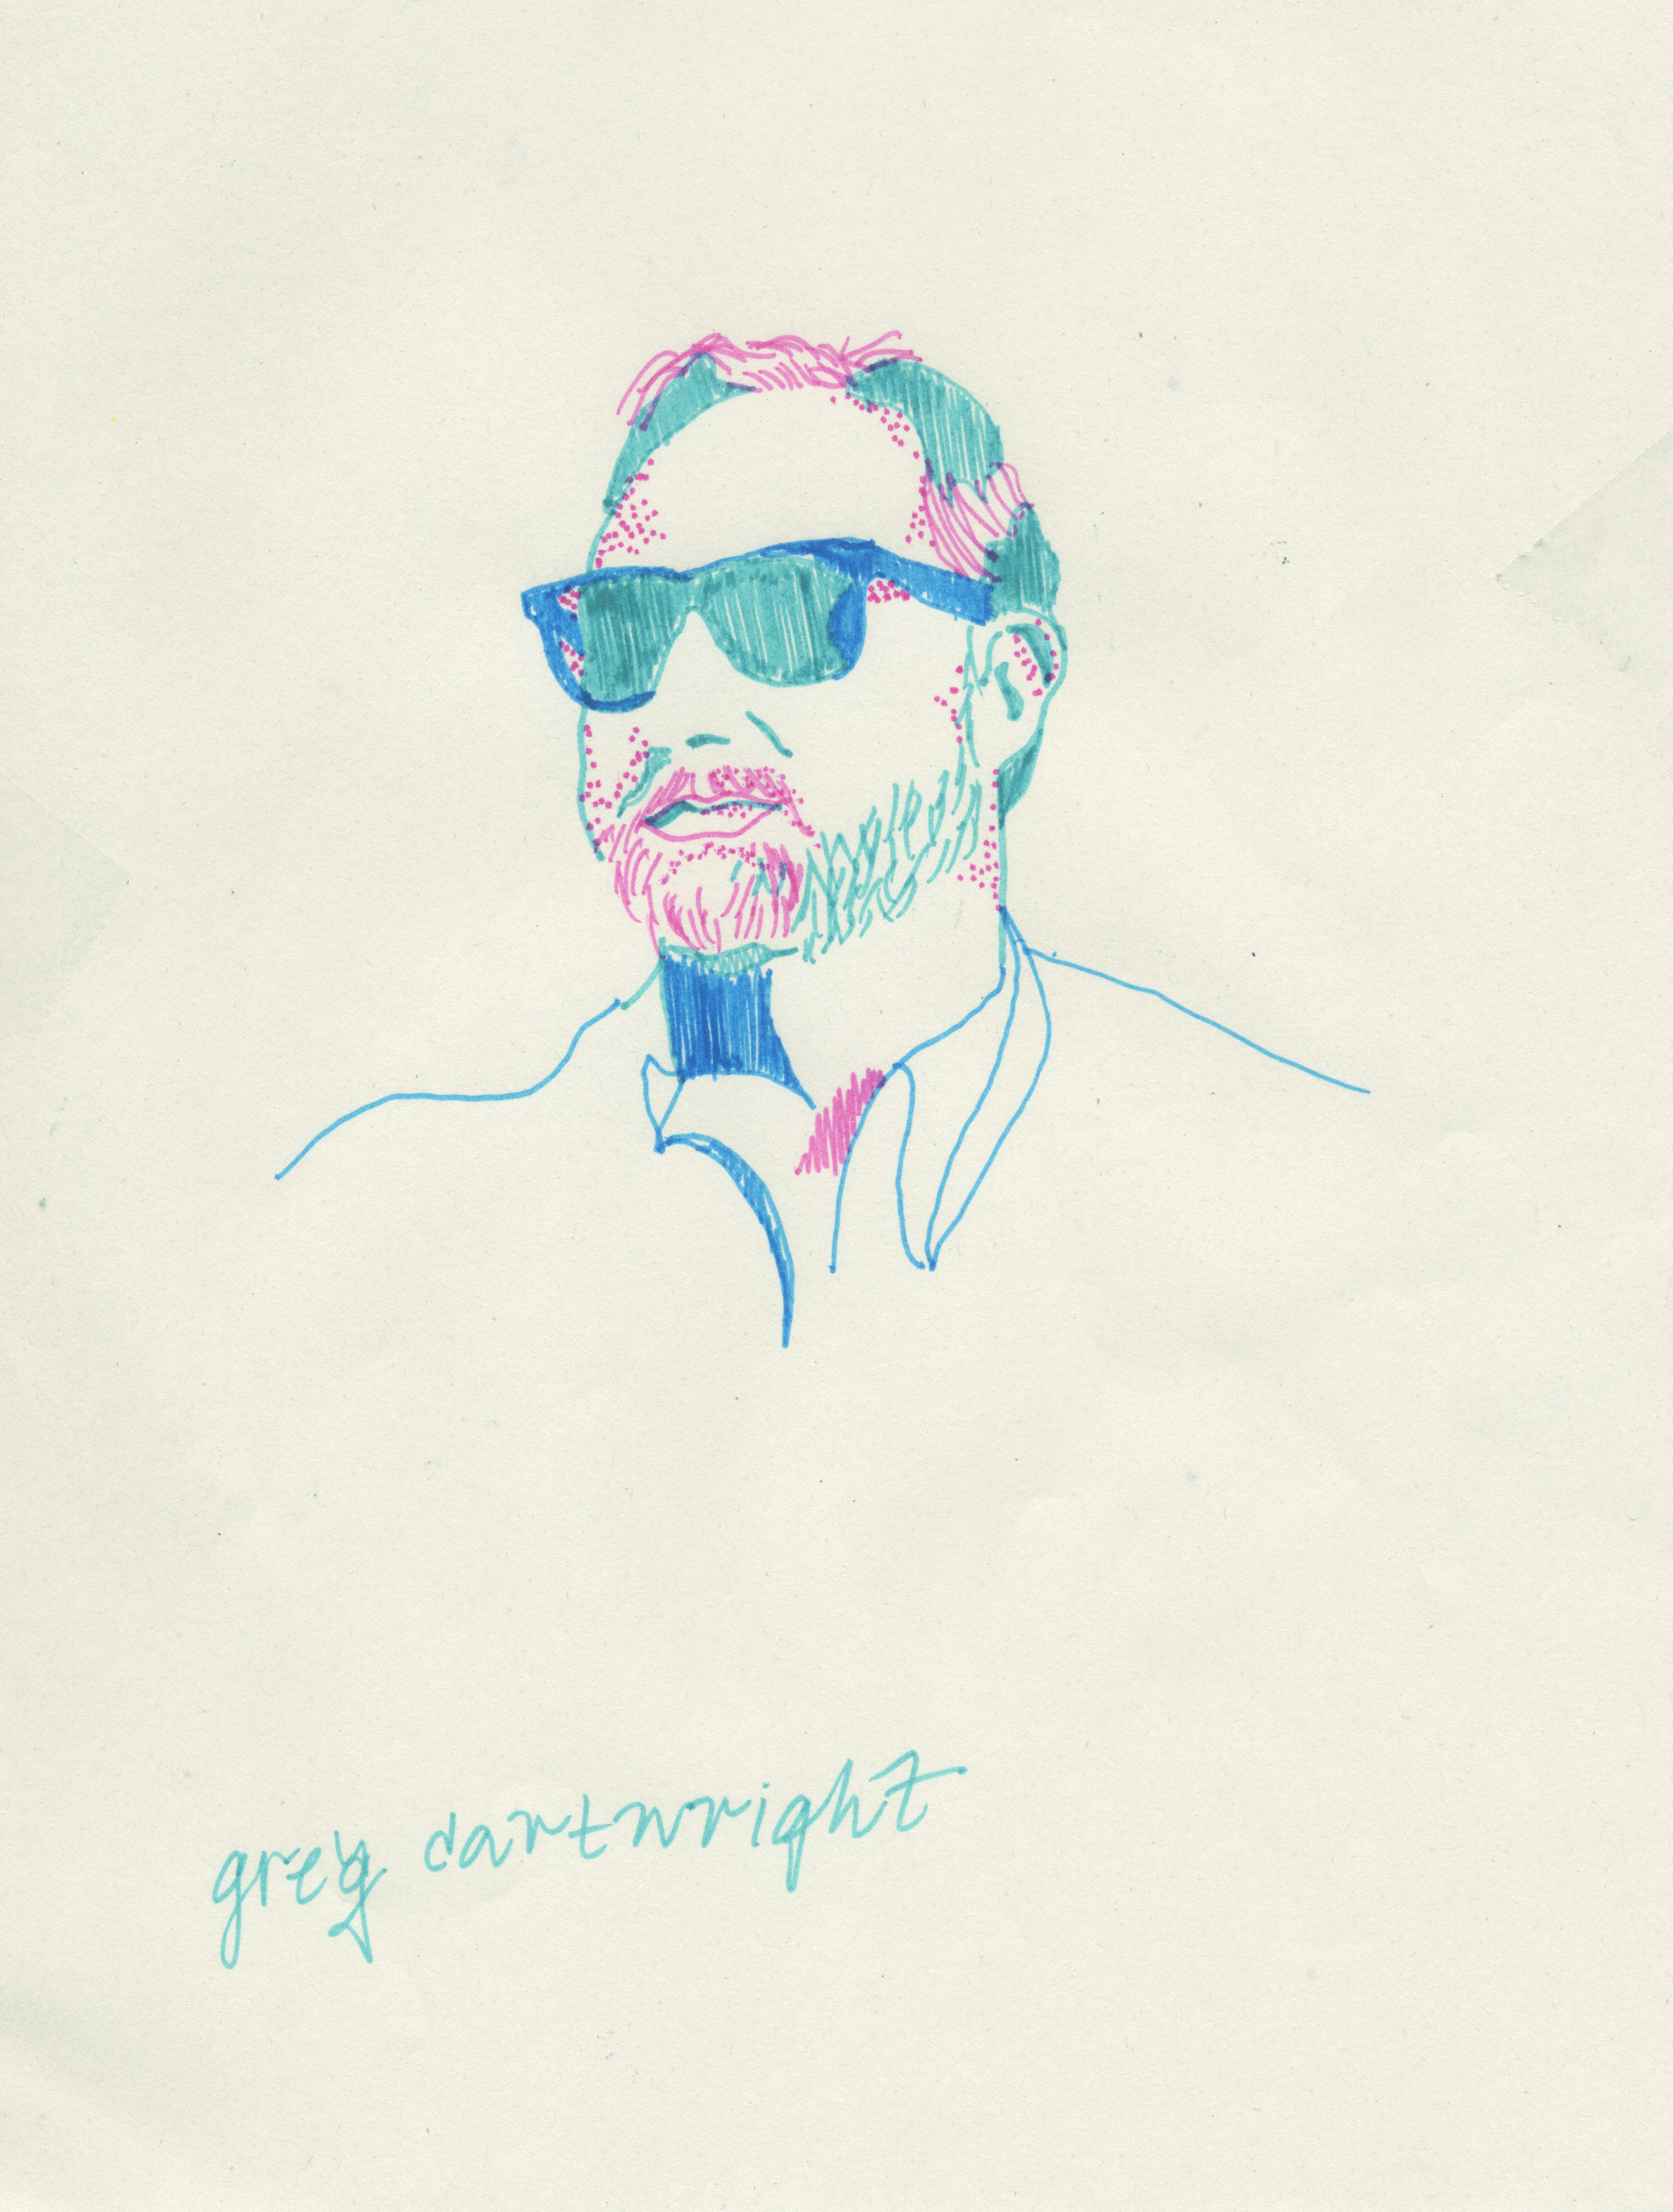 greg cartwright